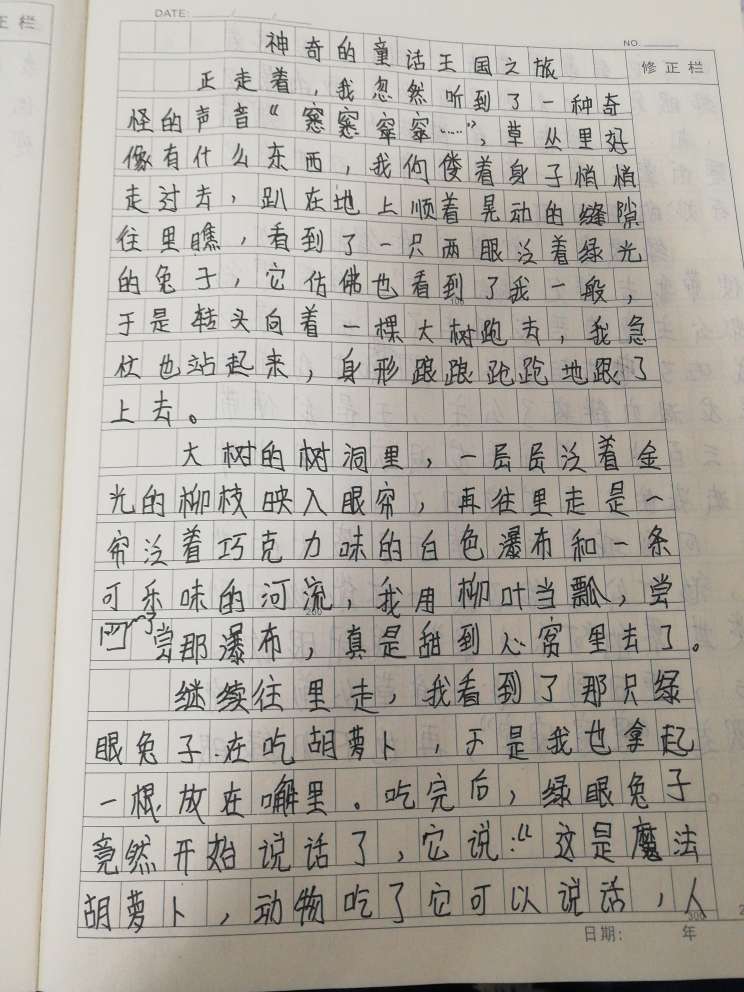 正栏
DATE: / /
NO.
神奇的童话王国之旅
修正栏
正走着，我忽然听到了一种奇
怪的声音“窸窸窣窣……”，草丛里好
像有什么东西，我们偻着身子悄悄
走过去，趴在地上顺着晃动的缝隙
往里瞧，看到了一只两眼泛着绿光
的兔子，它估佛也看到了我一般，
100
于是转头向着一棵大树跑去，我急
忙也站起来，身形踉踉跄跄地跟了
上去。
大树的树洞里，一层层泛着金
光的柳枝映入眼帘，再往里走是一
帘泛着巧克力味的白色瀑布和一条
可乐味的河流，我用柳叶当瓢，尝
200
了尝那瀑布，真是甜到心窝里去了。
继续往里走，我看到了那只绿
眼兔子在吃胡萝卜，于是我也拿起
一根放在嘴里。吃完后，绿眼兔子
竟然开始说话了，它说：“这是魔法
胡萝卜，动物吃了它可以说话，人
300
日期： 年